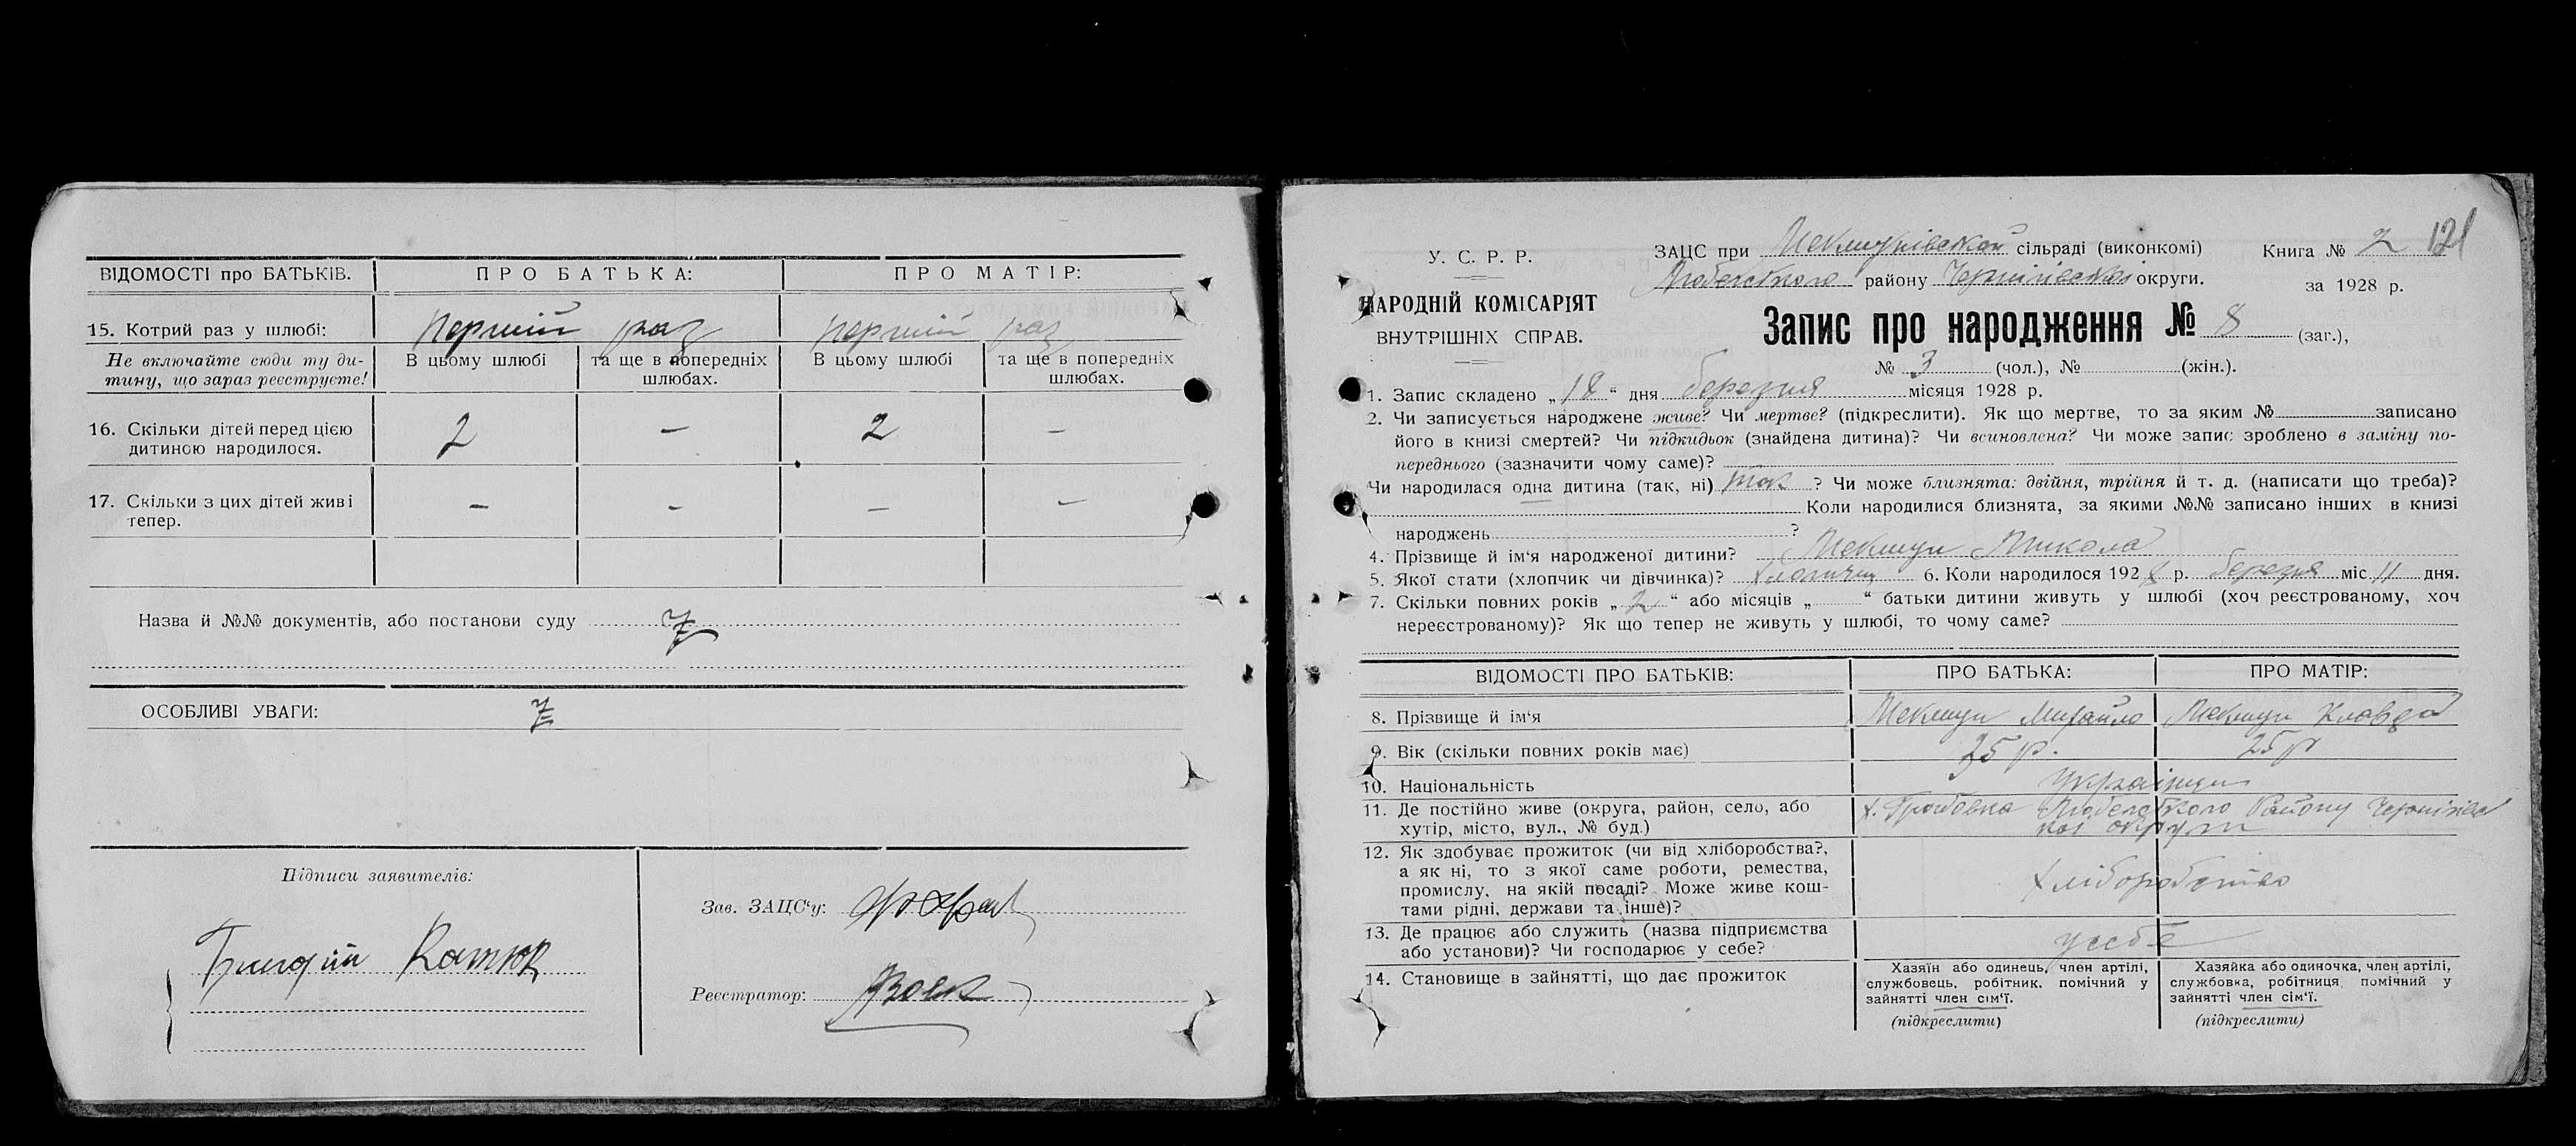 ВІДОМОСТІ про БАТЬКІВ. ПРО БАТЬКА: ПРО МАТІР:
15. Котрий раз у шлюбі: перший раз перший раз
Не включайте сюди ту ди- В цьому шлюбі та ще в попередніх В цьому шлюбі та ще в попередніх
тину, що зараз реєструєте! шлюбах. шлюбах.
16. Скільки дітей перед цією 2 — 2 —
дитиною народилося.
17. Скільки з цих дітей живі – – – –
тепер.
Назва й №№ документів, або постанови суду
ОСОБЛИВІ УВАГИ:
Підписи заявителів:
Зав. ЗАЦС‘у:
Реєстратор:
У. С. Р. Р.
НАРОДНІЙ КОМІСАРІЯТ
ВНУТРІШНІХ СПРАВ.
ЗАЦС при сільраді (виконкомі)
району Чернігівської округи.
Книга № 2 121
за 1928 р.
Запис про народження № 8 (заг.),
№ 3 (чол.), № (жін.).
1. Запис складено „18“ дня березня місяця 1928 р.
2. Чи записується народжене живе? Чи мертве? (підкреслити). Як що мертве, то за яким № записано
його в книзі смертей? Чи підкидьок (знайдена дитина)? Чи всиновлена? Чи може запис зроблено в заміну по-
переднього (зазначити чому саме)?
Чи народилася одна дитина (так, ні) так ? Чи може близнята: двійня, трійня й т. д. (написати що треба)?
Коли народилися близнята, за якими №№ записано інших в книзі
народжень ?
4. Прізвище й ім‘я народженої дитини? Микола
5. Якої статі (хлопчик чи дівчинка)? Хлопчик 6. Коли народилося 1928 р. березня міс 11 дня.
7. Скільки повних років „2“ або місяців „ “ батьки дитини живуть у шлюбі (хоч реєстрованому, хоч
нереєстрованому)? Як що тепер не живуть у шлюбі, то чому саме?
ВІДОМОСТІ ПРО БАТЬКІВ: ПРО БАТЬКА: ПРО МАТІР:
8. Прізвище й ім‘я Михайло
9. Вік (скільки повних років має) 25 р. 25 р
10. Національність Українци
11. Де постійно живе (округа, район, село, або х. району
хутір, місто, вул., № буд.) округи
12. Як здобуває прожиток (чи від хліборобства?, хліборобство
а як ні, то з якої саме роботи, ремества,
промислу, на якій посаді? Може живе кош-
тами рідні, держави та інше)?
13. Де працює або служить (назва підприємства у себе
або установи)? Чи господарює у себе?
14. Становище в зайнятті, що дає прожиток
Хазяїн або одинець, член артілі,
службовець, робітник, помічний у
зайнятті член сім‘ї.
(підкреслити)
Хазяйка або одиночка, член артілі,
службовка, робітниця, помічний у
зайнятті член сім‘ї.
(підкреслити)